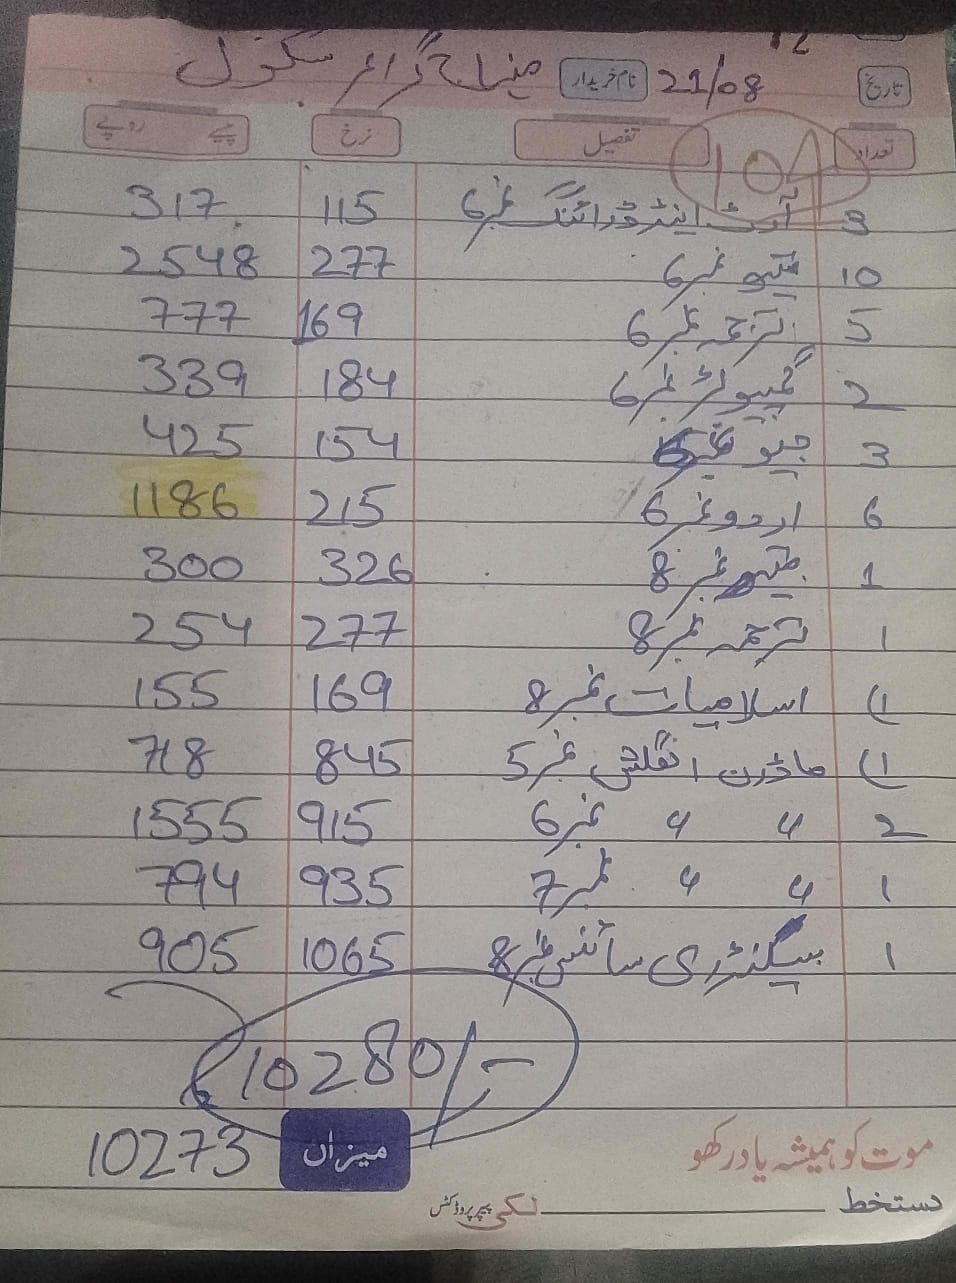 12
تاریخ 21/08 نام خریدار منہاج گرائمر سکول
104
تعداد تفصیل نرخ پیسے روپے
3 آرٹ اینڈ ڈرائنگ نمبر 6 115 317
10 میتھ نمبر 6 277 2548
5 ترجمہ نمبر 6 169 777
2 کمپیوٹر نمبر 6 184 339
3 جیو نمبر 154 425
6 اردو نمبر 6 215 1186
1 میتھ نمبر 8 326 300
1 ترجمہ نمبر 8 277 254
1) اسلامیات نمبر 8 169 155
1) ماڈرن انگلش نمبر 5 845 718
2 〃 〃 نمبر 6 915 1555
1 〃 〃 نمبر 7 935 794
1 سیکنڈری سائنس نمبر 8 1065 905
10280/-
موت کو ہمیشہ یاد رکھو میزان 10273
دستخط لکی پیپر پروڈکٹس